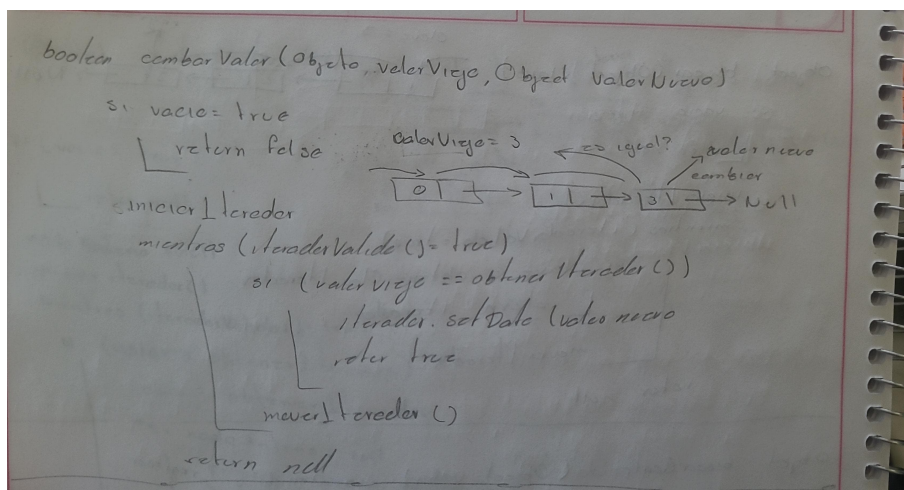 boolean cambarValor(Objeto, valorViejo, Object valorNuevo)
si vacio = true
return false
valorViejo = 3
es igual?
valor nuevo
cambiar
0
1
3
Null
iniciarIterador
mientras (iteradorValido()= true)
si (valorViejo == obtenerIterador())
iterador.setDato (valeo nuevo
reter true
moverIterador ()
return null